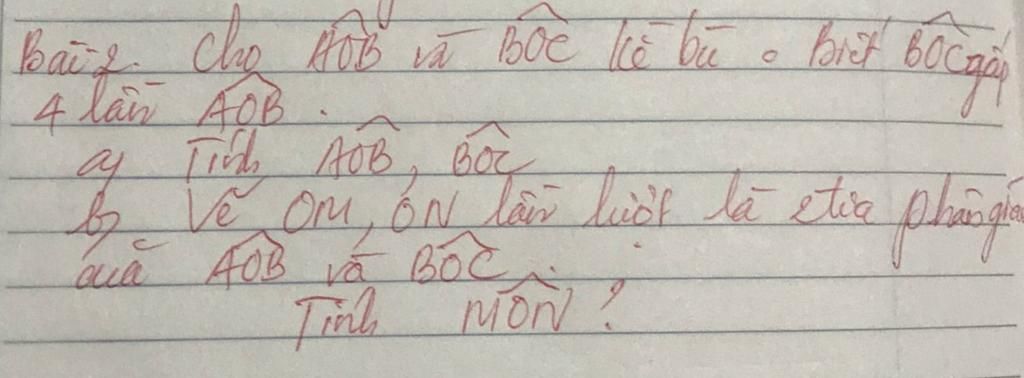 Bài 2. Cho AÔB và BÔC kề bù. Biết BÔC gấp
4 lần AÔB.
a) Tính AÔB, BÔC
b) Vẽ OM, ON lần lượt là 2 tia phân giác
của AÔB và BÔC.
Tính MÔN?